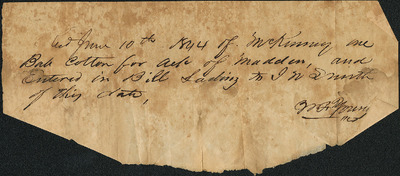 June 10th 1844 of McKinney one
Bale Cotton for acct of Madden, and
Entered in Bill Lading to J W
of this date,